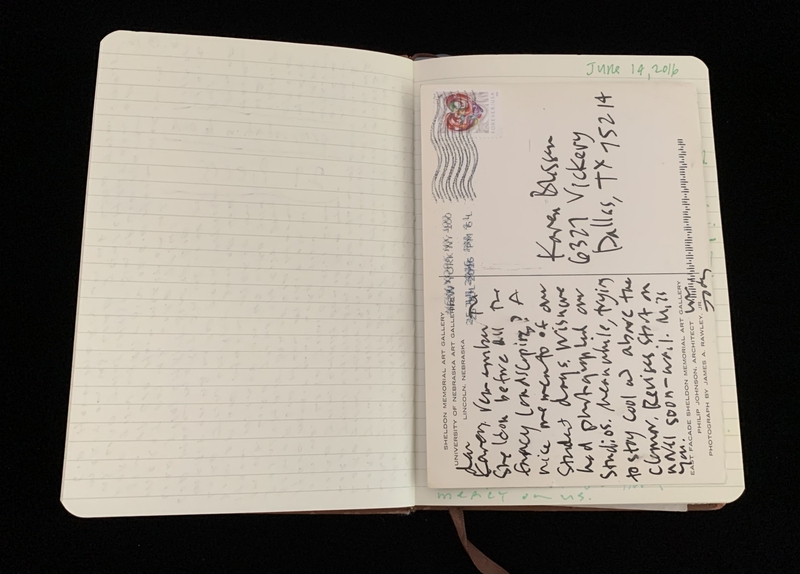 June 14, 2016
FOREVER USA
NEW YORK NY 100
2016 PM 8 L
Karen Blessen
6327 Vickery
Dallas, TX 75214
SHELDON MEMORIAL ART GALLERY
UNIVERSITY OF NEBRASKA ART GALLERIES
LINCOLN, NEBRASKA
Karen, remember
Sheldon before all the
fancy landscaping? A
nice memento of our
student days. Wish we
had photographed our
studios. Meanwhile, trying
to stay cool and above the
clamor. Revises start on
soon—wait. Miss
you.
EAST FACADE SHELDON MEMORIAL ART GALLERY
PHILIP JOHNSON, ARCHITECT
PHOTOGRAPH BY JAMES A. RAWLEY, JR.
mercy on us.